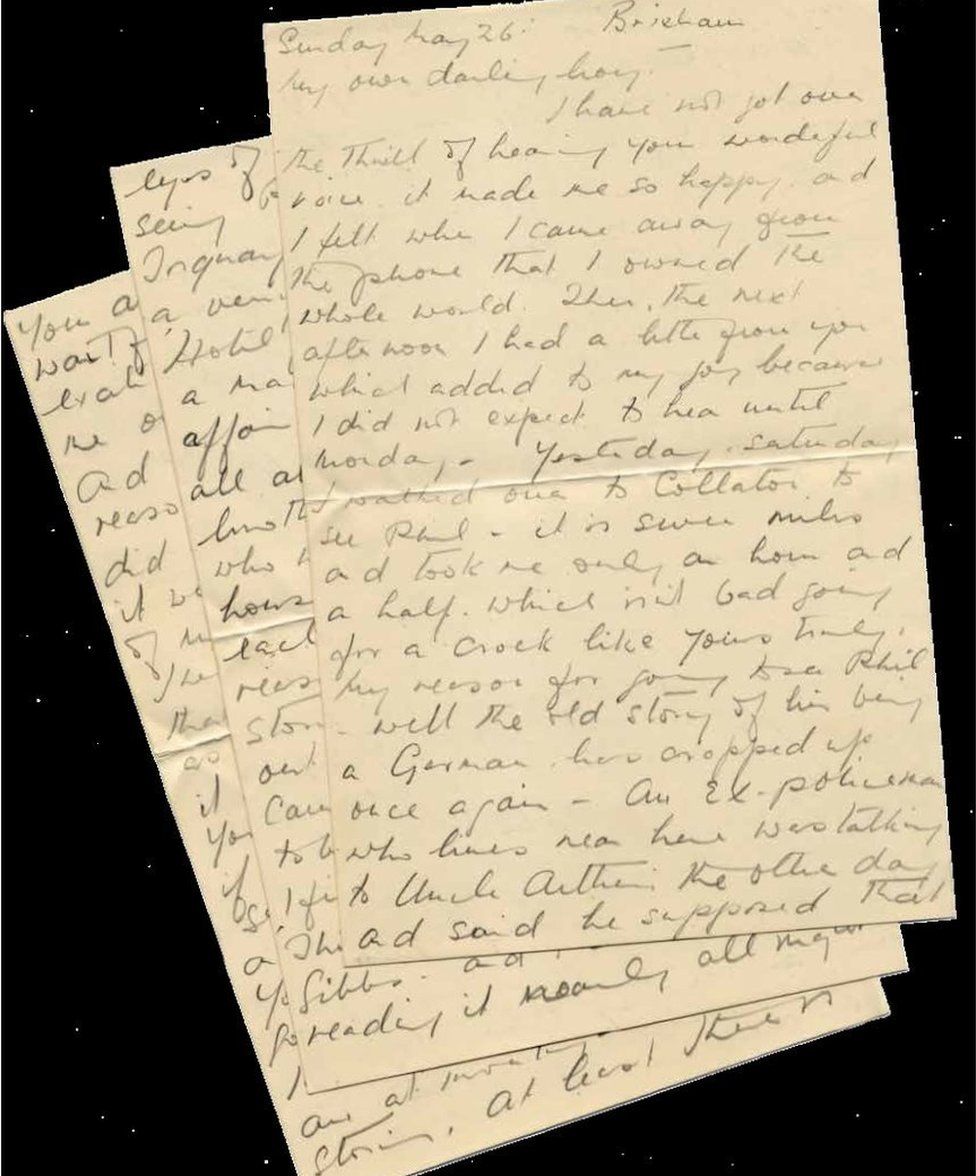 Sunday May 26. Brixham
My own darling boy.
I have not got over
the thrill of hearing your wonderful
voice. it made me so happy. and
I felt when I came away from
the phone that I owned the
whole world. Then, the next
afternoon I had a letter from you
which added to my joy because
I did not expect to hear until
Monday. - Yesterday. Saturday
I walked over to Collaton to
see Phil - it is seven miles
and took me only an hour and
a half. which isn't bad going
for a crock like yours truly.
My reason for going to see Phil
- well the old story of his being
a German has cropped up
once again - An Ex-policeman
who lives near here was talking
to Uncle Arthur the other day
and said he supposed that
eyes of
seeing
Torquay
a very
Hotel
a
affair
all
who
hous
each
reas
stor
out
Cam
to b
The
Gibbs. and
reading it nearly all
You a
wait
me o
and
reaso
did
it
of
The
tha
as
it
Yo
if
a
at
Storm, at least there is